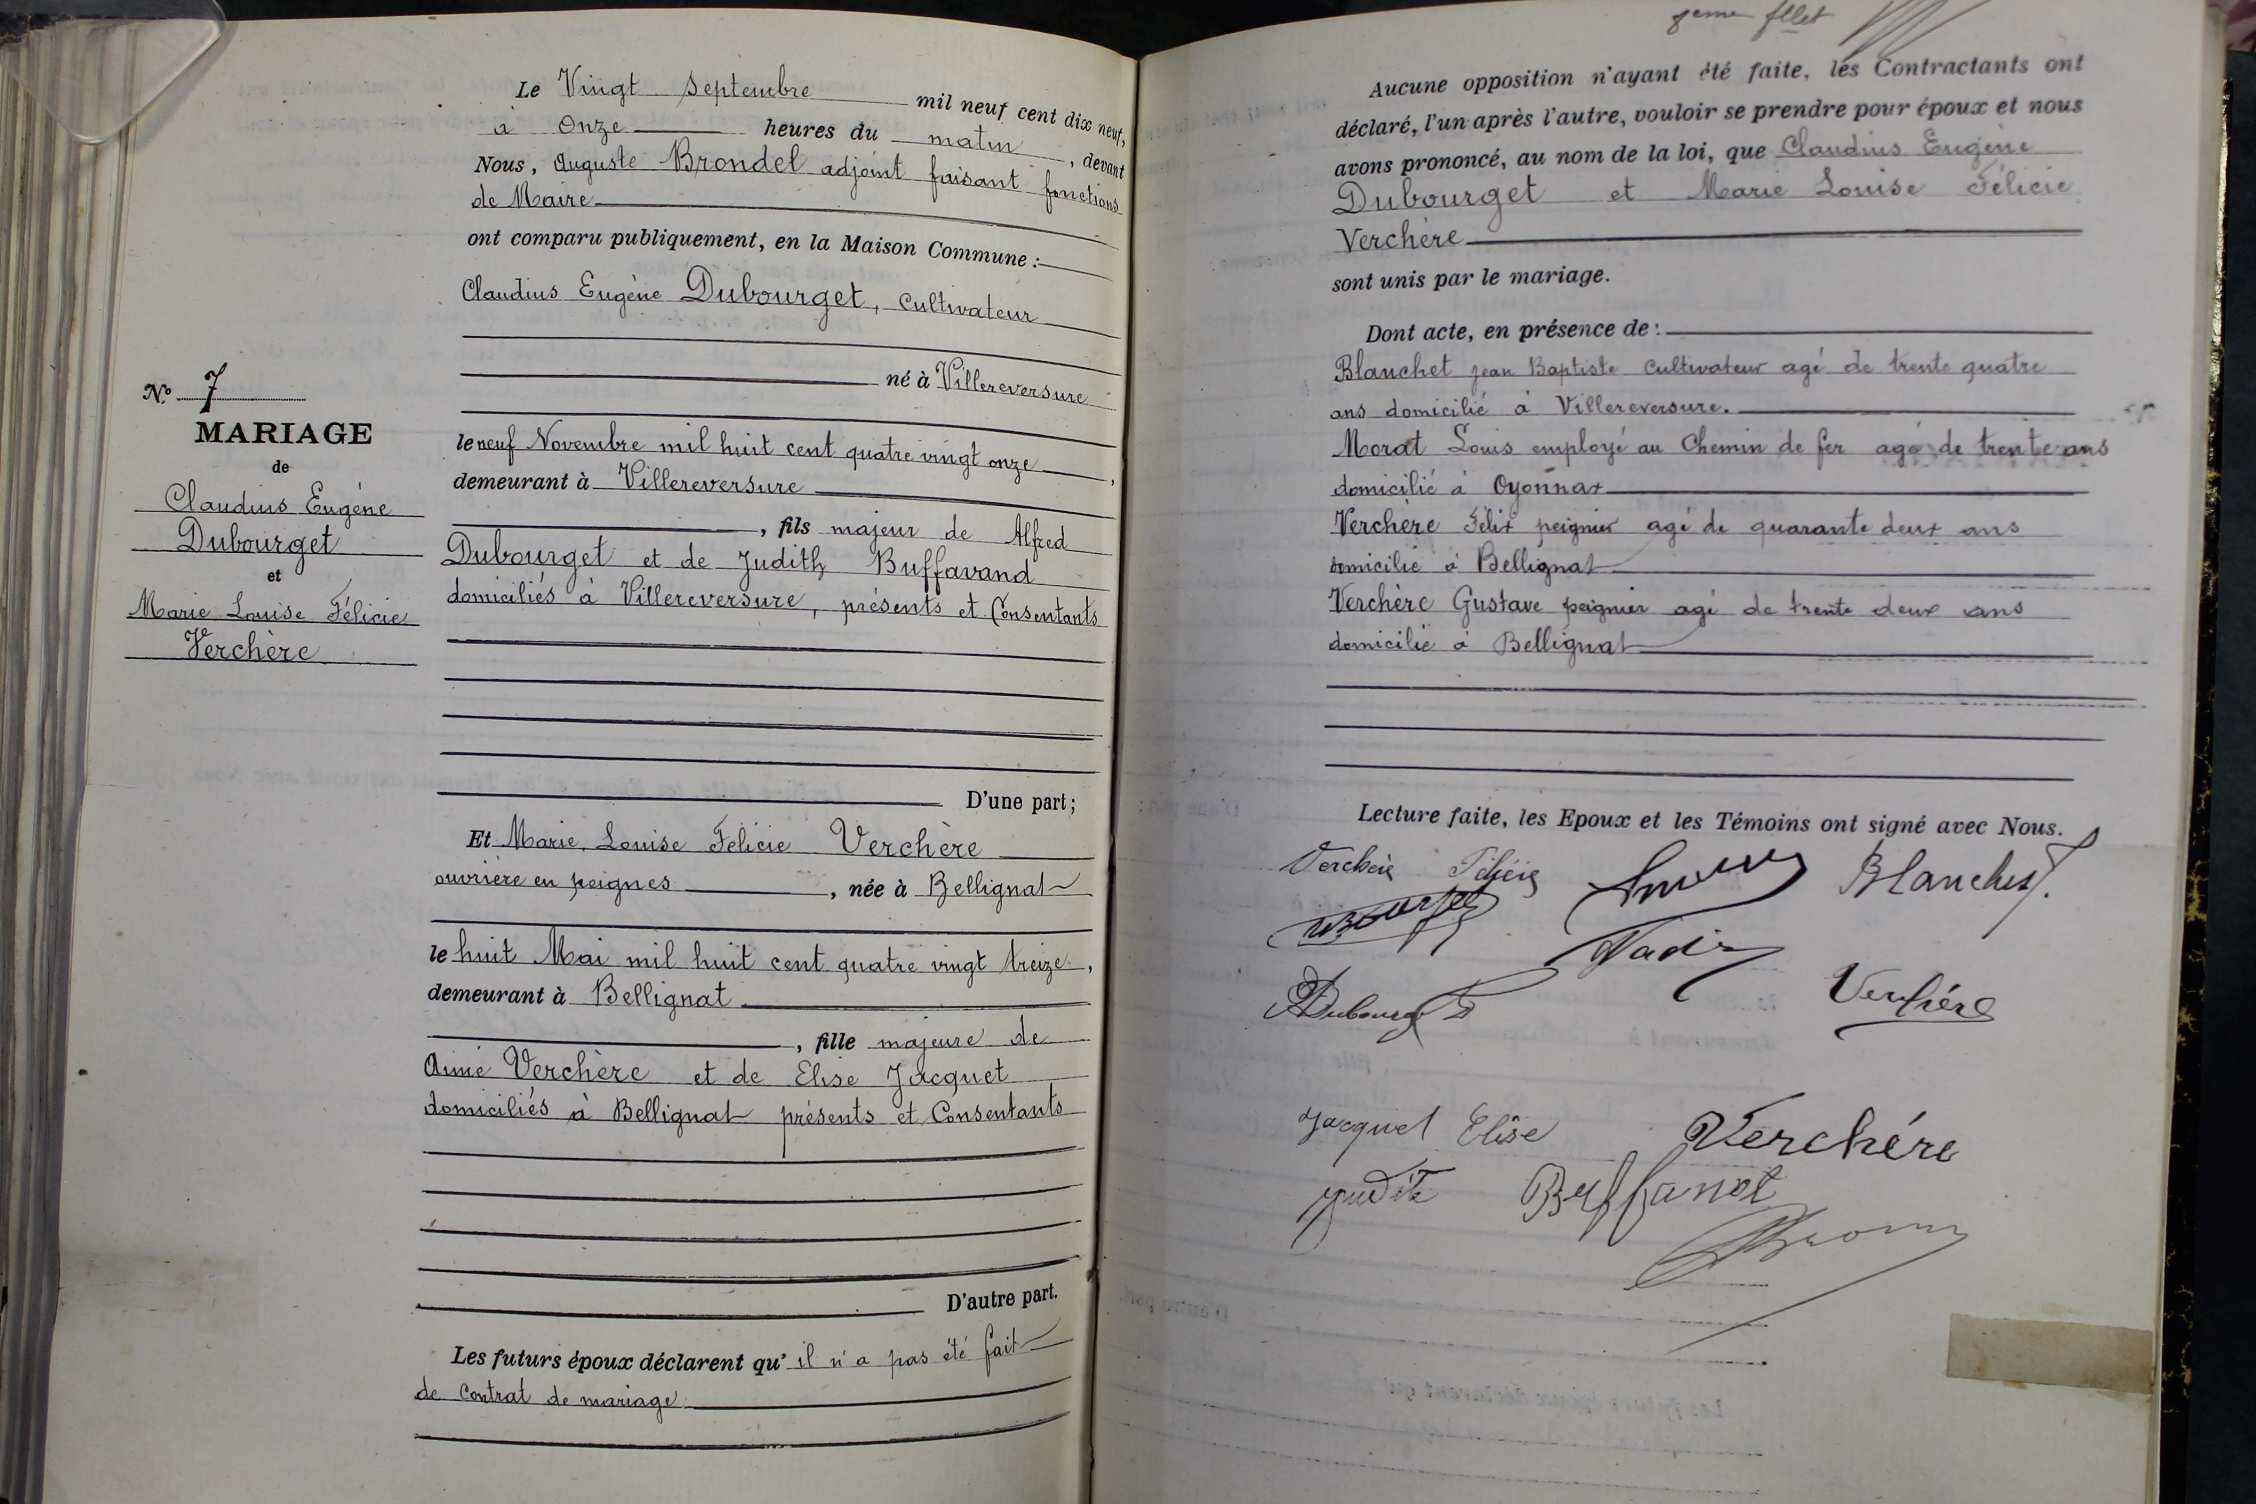 Le Vingt Septembre mil neuf cent dix neuf,
à Onze heures du matin, devant
Nous, Auguste Brondel adjoint faisant fonctions
de Maire
ont comparu publiquement, en la Maison Commune :
Claudius Eugène Dubourget, Cultivateur
né à Villereversure
le neuf Novembre mil huit cent quatre vingt onze,
demeurant à Villereversure
, fils majeur de Alfred
Dubourget et de Judith Buffavand
domiciliés à Villereversure, présents et Consentants
D'une part;
Nº 7
MARIAGE
de
Claudius Eugène
Dubourget
et
Marie Louise Félicie
Verchère
Et Marie Louise Félicie Verchère
ouvrière en peignes, née à Bellignat
le huit Mai mil huit cent quatre vingt treize,
demeurant à Bellignat
, fille majeure de
Aimé Verchère et de Elise Jacquet
domiciliés à Bellignat présents et Consentants
D'autre part.
Les futurs époux déclarent qu' il n'a pas été fait
de Contrat de mariage.
Aucune opposition n'ayant été faite, les Contractants ont
déclaré, l'un après l'autre, vouloir se prendre pour époux et nous
avons prononcé, au nom de la loi, que Claudius Eugène
Dubourget et Marie Louise Félicie
Verchère
sont unis par le mariage.
Dont acte, en présence de :
Blanchet Jean Baptiste Cultivateur agé de trente quatre
ans domicilié à Villereversure.
Morat Louis employé au Chemin de fer agé de trente ans
domicilié à Oyonnax
Verchère Félix peignier agé de quarante deux ans
domicilié à Bellignat
Verchère Gustave peignier agé de trente deux ans
domicilié à Bellignat
Lecture faite, les Epoux et les Témoins ont signé avec Nous.
Verchère Félicie
Blanchet.
Verchére
Jacquet Elise Verchére
Judith Buffanot